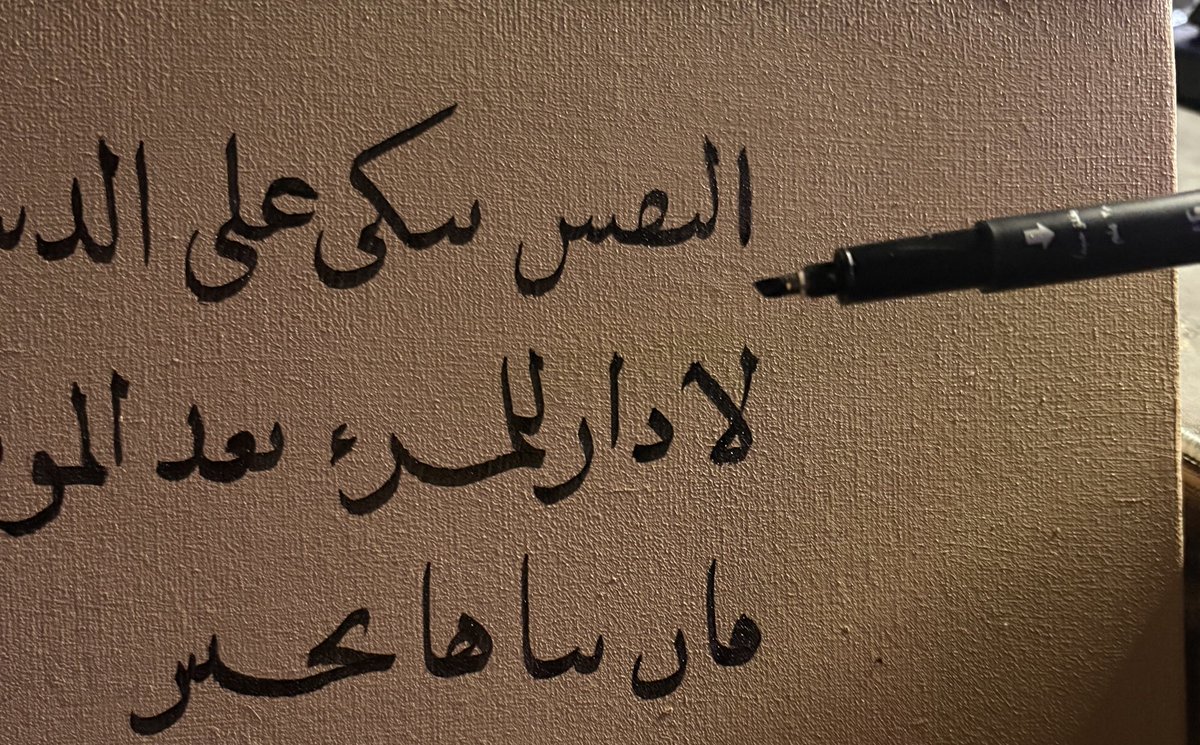 النفس تبكى على الدن
لا دار للمرء بعد المو
فان بناها بخير